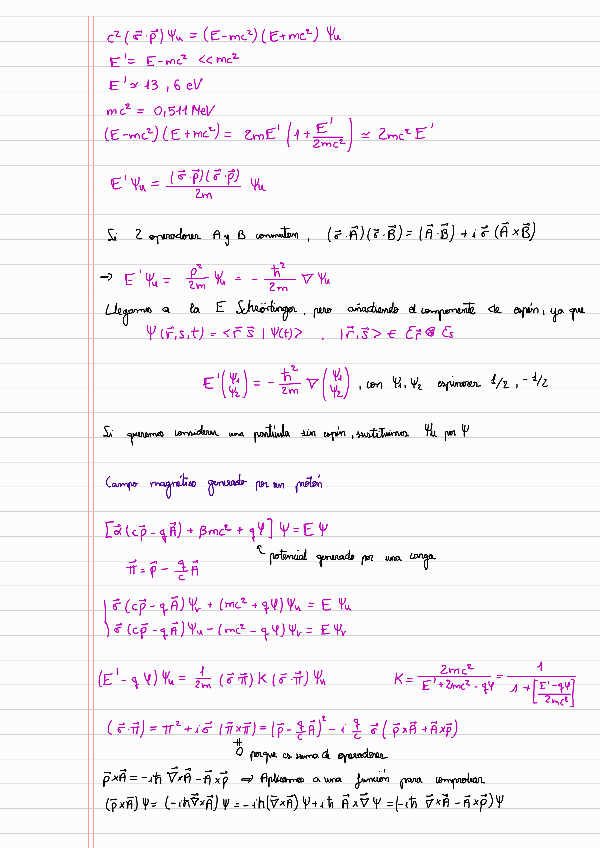 c²(σ⃗·p⃗)Ψu = (E-mc²)(E+mc²) Ψu
E' = E-mc² << mc²
E' ≃ 13,6 eV
mc² = 0,511 MeV
(E-mc²)(E+mc²) = 2mE' (1 + E'/2mc²) ≃ 2mc² E'
E'Ψu = (σ⃗·p⃗)(σ⃗·p⃗)/2m Ψu
Si 2 operadores A y B conmutan, (σ⃗·A⃗)(σ⃗·B⃗) = (A⃗·B⃗) + i σ⃗ (A⃗×B⃗)
→ E'Ψu = p²/2m Ψu = - ħ²/2m ∇ Ψu
Llegamos a la E Schrödinger, pero añadiendo el componente de espín, ya que
Ψ(r⃗,s,t) = <r⃗ s⃗ | Ψ(t)> , |r⃗,s⃗> ∈ Ɛr⃗ ⊗ Ɛs
E' (Ψ1 Ψ2) = - ħ²/2m ∇ (Ψ1 Ψ2), con Ψ1, Ψ2 espinores 1/2, -1/2
Si queremos considerar una partícula sin espín, sustituimos Ψu por Ψ
Campo magnético generado por un protón
[α⃗(cp⃗ - qA⃗) + βmc² + qφ] Ψ = E Ψ
↑ potencial generado por una carga
π⃗ = p⃗ - q/c A⃗
σ⃗(cp⃗ - qA⃗)Ψv + (mc² + qφ)Ψu = E Ψu
σ⃗(cp⃗ - qA⃗)Ψu - (mc² - qφ)Ψv = E Ψv
(E' - qφ)Ψu = 1/2m (σ⃗·π⃗) K (σ⃗·π⃗) Ψu K = 2mc²/(E' + 2mc² - qφ) = 1/(1 + [(E' - qφ)/2mc²])
(σ⃗·π⃗) = π² + iσ⃗ (π⃗×π⃗) = (p⃗ - q/c A⃗)² - i q/c σ⃗ (p⃗×A⃗ + A⃗×p⃗)
≠ 0 porque es suma de operadores
p⃗×A⃗ = -iħ ∇⃗×A⃗ - A⃗×p⃗ ⇒ Aplicamos a una función para comprobar
(p⃗×A⃗)Ψ = (-iħ∇⃗×A⃗)Ψ = -iħ(∇⃗×A⃗)Ψ + iħ A⃗×∇⃗Ψ = (-iħ ∇⃗×A⃗ - A⃗×p⃗)Ψ